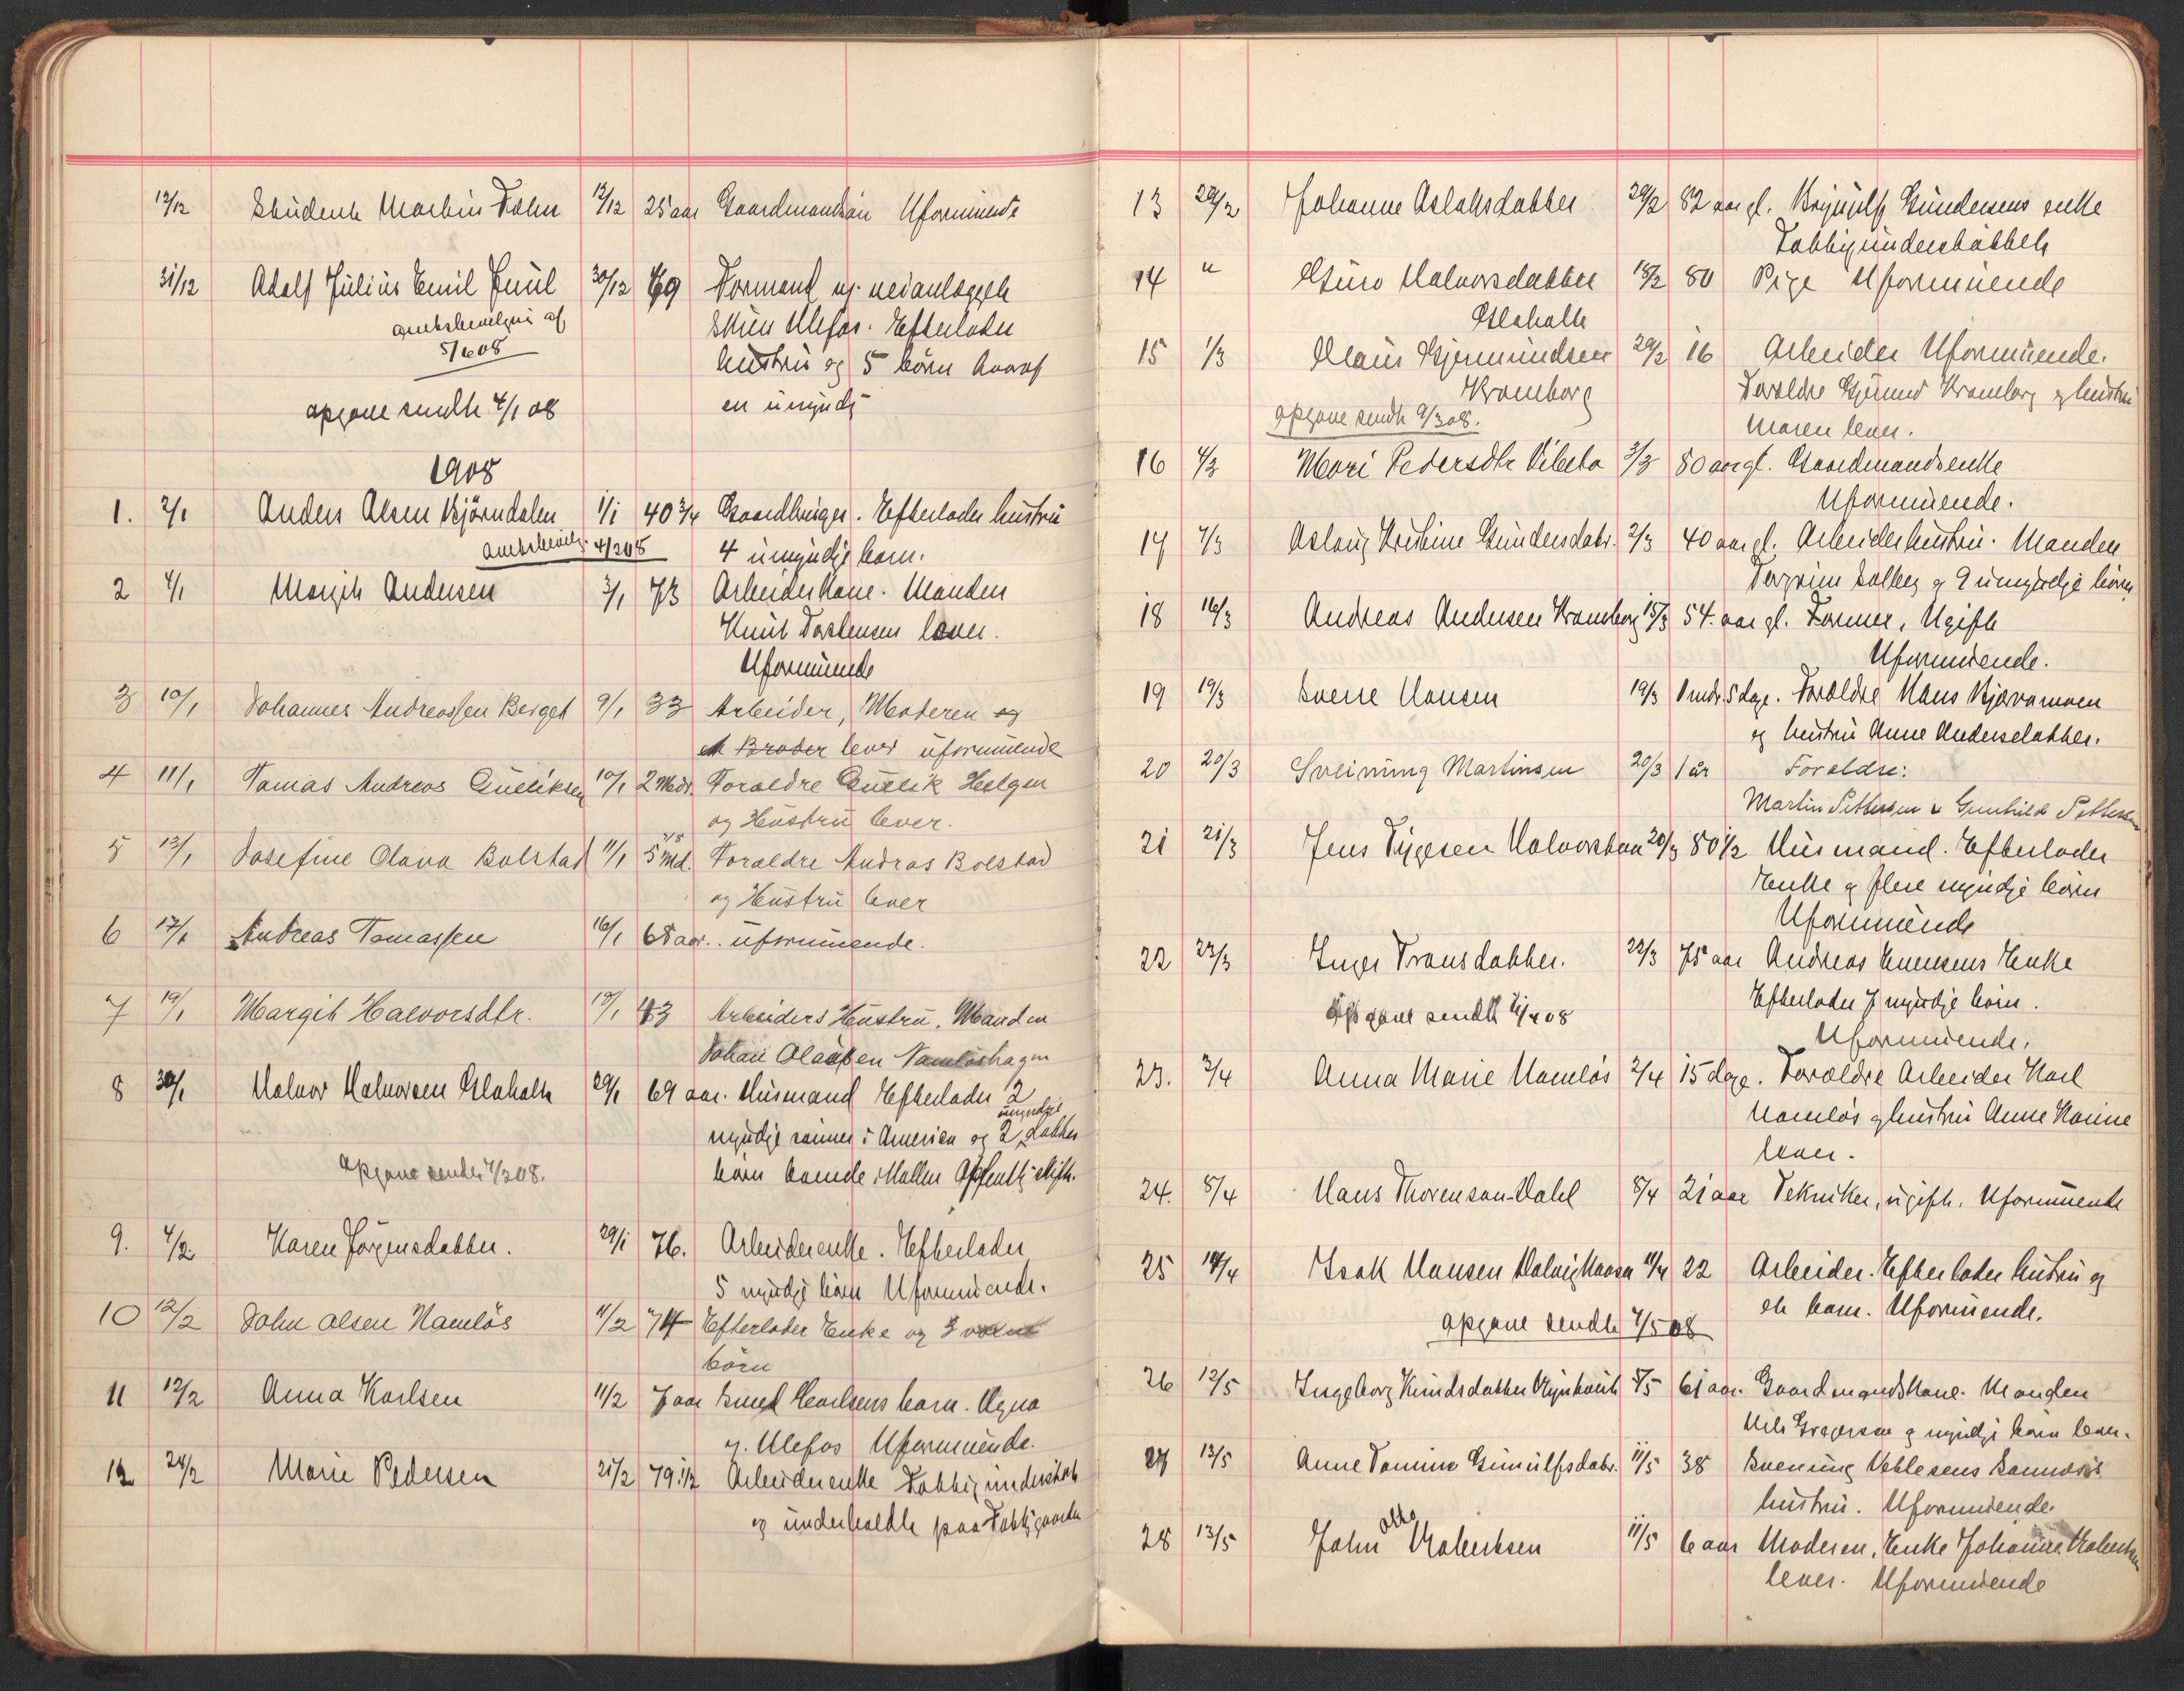 12/12 Student Martin Dahn 12/12 25 aar Gaardmandsøn Uformuende
31/12 Adolf Julius Emil Juul 30/12 69 Formand v. veianlægget
amtsbevilgn. af Skien Ulefos. Efterlader
5/6 08 hustru og 5 børn hvoraf
opgave sendt 4/1 08 en umyndig
1908
1. 2/1 Anders Olsen Bjørndalen 1/1 40 3/4 Gaardbruger. Efterlader hustru
amtsbevilg. 4/2 08 4 umyndige barn.
2 4/1 Margit Andersen 3/1 73 Arbeiderkone. Manden
Knut Torstensen lever.
Uformuende
3 10/1 Johannes Andreassen Berget 9/1 33 Arbeider, Moderen og
en Broder lever uformuende
4 11/1 Tomas Andreas Gulliksen 10/1 2 Mdr. Forældre Gullik Helgen
og Hustru lever.
5 13/1 Josefine Olava Bolstad 11/1 5 Md. Forældre Andras Bolstad
og Hustru lever
6 17/1 Andreas Tomassen 16/1 68 aar. uformuende.
7 19/1 Margit Halvorsdtr. 18/1 43 Arbeiders Hustru. Manden
Johan Olaussen Namløshagen
8 30/1 Halvor Halvorsen Glaholt 29/1 69 aar. Husmand Efterlader 2
umyndige
myndige sønner i Amerika og 2 datter
opgave sendt 4/2 08. børn Offentlig skifte.
9. 4/2 Karen Jørgensdatter. 29/1 76. Arbeiderenke. Efterlader
5 myndige børn Uformuende.
10 12/2 John Olsen Namløs 11/2 74 Efterlader Enke og 3 voksne
børn
11 12/2 Anna Karlsen 11/2 7 aar Smed Carlsens barn.
v. Ulefos Uformuende.
12 24/2 Marie Pedersen 21/2 79 1/2 Arbeiderenke Fattigunderstøt
og underholdt paa Fattiggaarden
13 29/2 Johanne Aslaksdatter 29/2 82 aar gl. Brynjulf Gundersens enke
Fattigunderstøttet
14 " Guro Halvorsdatter 18/2 80 Pige Uformuende
Glaholt
15 1/3 Klaus Gjermundsen 29/2 16 Arbeider Uformuende.
Kroneborg Forældre Gjermund Kroneborg og hustru
opgave sendt 9/3 08. Maren lever.
16 4/3 Mari Pedersdtr Vibeto 3/3 80 aar gl. Gaardmandsenke
Uformuende.
17 7/3 Aslaug Kristine Gundersdatr. 2/3 40 aar gl. Arbeiderhustru. Manden
Torgrim Solberg og 9 umyndige børn
18 16/3 Andreas Andersen Kroneborg 15/3 54. aar gl. Former, Ugift
Uformuende.
19 19/3 Sverre Hansen 19/3 1 mdr. 5 dage. Forældre Hans Bjervamoen
og hustru Anne Andersdatter.
20 20/3 Sveinung Martinsen 20/3 1 år Foreldre:
Martin Pettersen & Gunhild Pettersen
21 21/3 Jens Tygesen Halvorstun 20/3 80 1/2 Husmand. Efterlader
Enke og flere myndige børn
Uformuende
22 23/3 Inger Fransdatter. 22/3 75 aar Andreas Evensens Enke
Efterlader 7 myndige børn.
Opgave sendt 4/4 08 Uformuende.
23. 3/4 Anna Marie Namløs 2/4 15 dage. Forældre Arbeider Karl
Namløs og hustru Anne Karine
lever.
24. 8/4 Hans Thorenson-Dahl 8/4 21 aar Tekniker, ugift. Uformuende
25 14/4 Isak Hansen Halvigkaasa 11/4 22 Arbeider. Efterlader hustru og
et barn. Uformuende.
opgave sendt 4/5 08
26 12/5 Ingeborg Knudsdatter 5/5 61 aar. Gaardmandskone. Manden
Nils Gregersen og myndige børn lever.
27 13/5 Anne Tomine Gunulfsdatr. 11/5 38 Svenung Vetlesens
hustru. Uformuende
28 13/5 John Otto Robertsen 11/5 6 aar Moderen, Enke Johanne Robertsen
lever. Uformuende